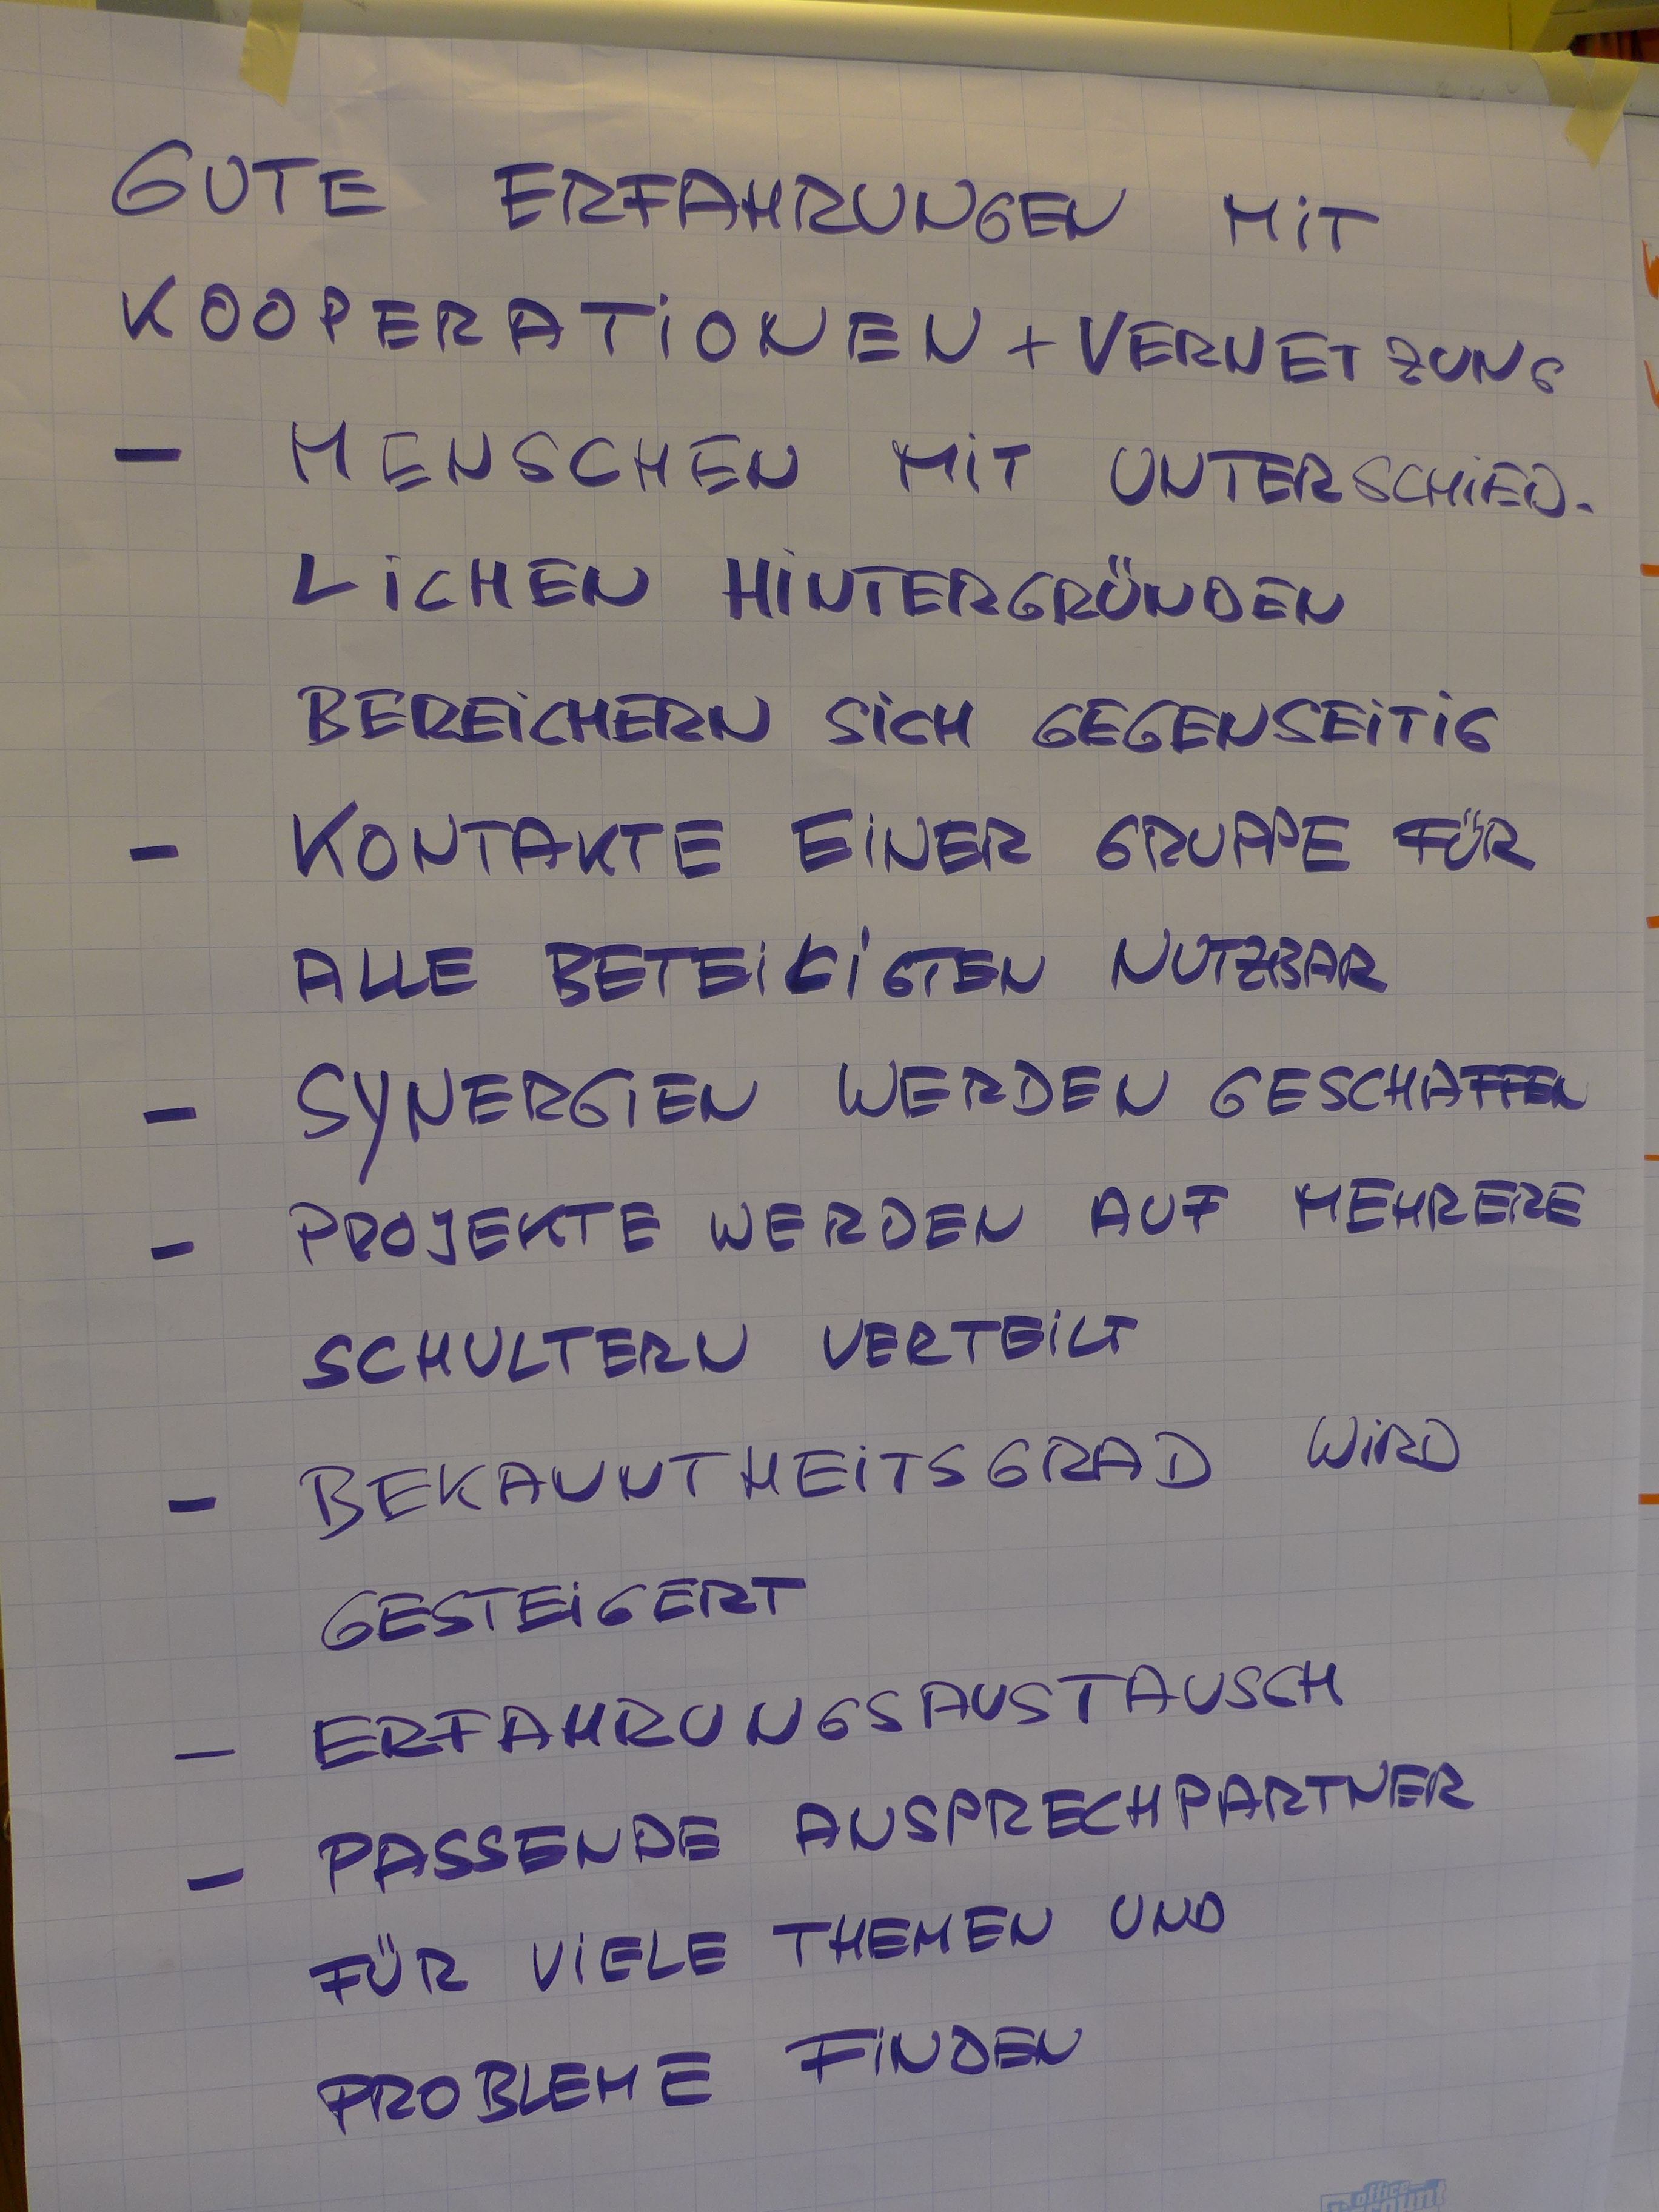 GUTE ERFAHRUNGEN MiT
KOOPERATiONEN + VERNETZUNG
- MENSCHEN MiT UNTERSCHiED-
LiCHEN HiNTERGRÜNDEN
BEREiCHERN SiCH GEGENSEiTiG
- KONTAKTE EiNER GRUPPE FÜR
ALLE BETEiLiGTEN NUTZBAR
- SYNERGIEN WERDEN GESCHAFFEN
- PROJEKTE WERDEN AUF MEHRERE
SCHULTERN VERTEiLT
- BEKANNTHEiTSGRAD WiRD
GESTEiGERT
- ERFAHRUNGSAUSTAUSCH
- PASSENDE ANSPRECHPARTNER
FÜR ViELE THEMEN UND
PROBLEME FiNDEN
office